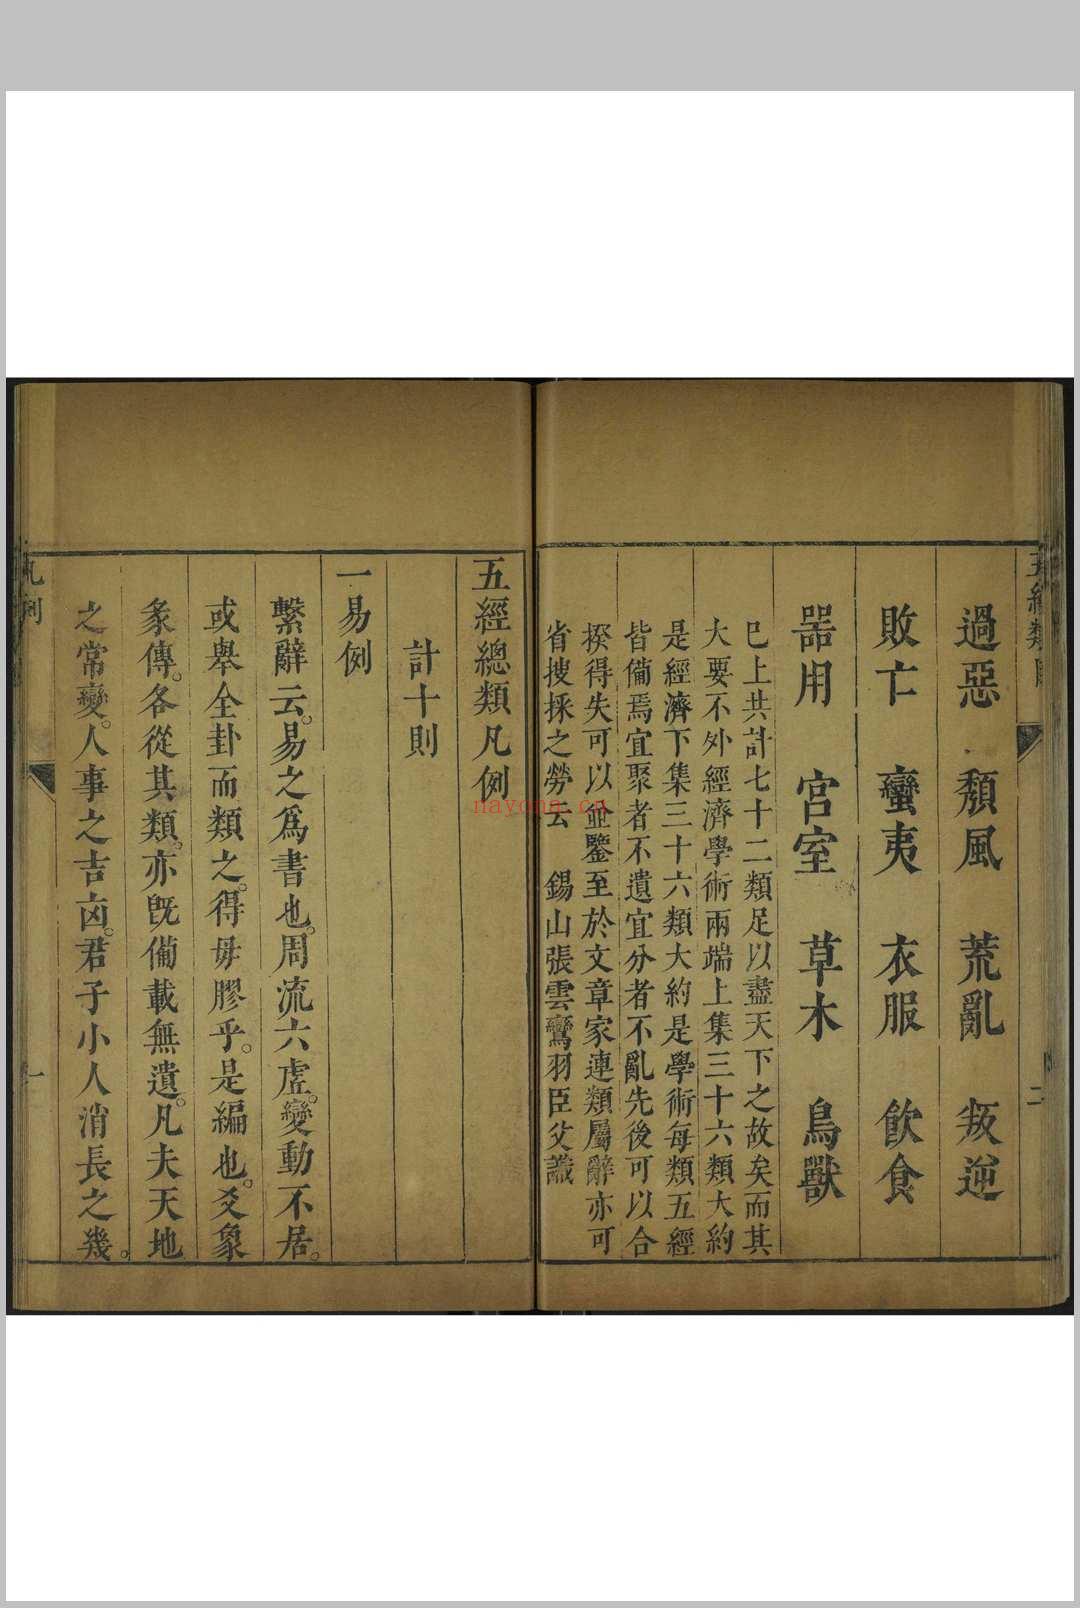 過惡 頹風 荒亂 叛逆
敗亡 蠻夷 衣服 飲食
器用 宮室 草木 鳥獸
已上共計七十二類足以盡天下之故矣而其
大要不外經濟學術兩端上集三十六類大約
是經濟下集三十六類大約是學術每類五經
皆備焉宜聚者不遺宜分者不亂先後可以合
揆得失可以並鑒至於文章家連類屬辭亦可
省搜採之勞云 錫山張雲鸞羽臣父識
五經總類凡例
計十則
一易例
繫辭云。易之為書也。周流六虛。變動不居。
或舉全卦而類之。得毋膠乎。是編也。爻象
彖傳。各從其類。亦既備載無遺。凡夫天地
之常變。人事之吉凶。君子小人消長之幾。
凡例
一
二
nayona.cn